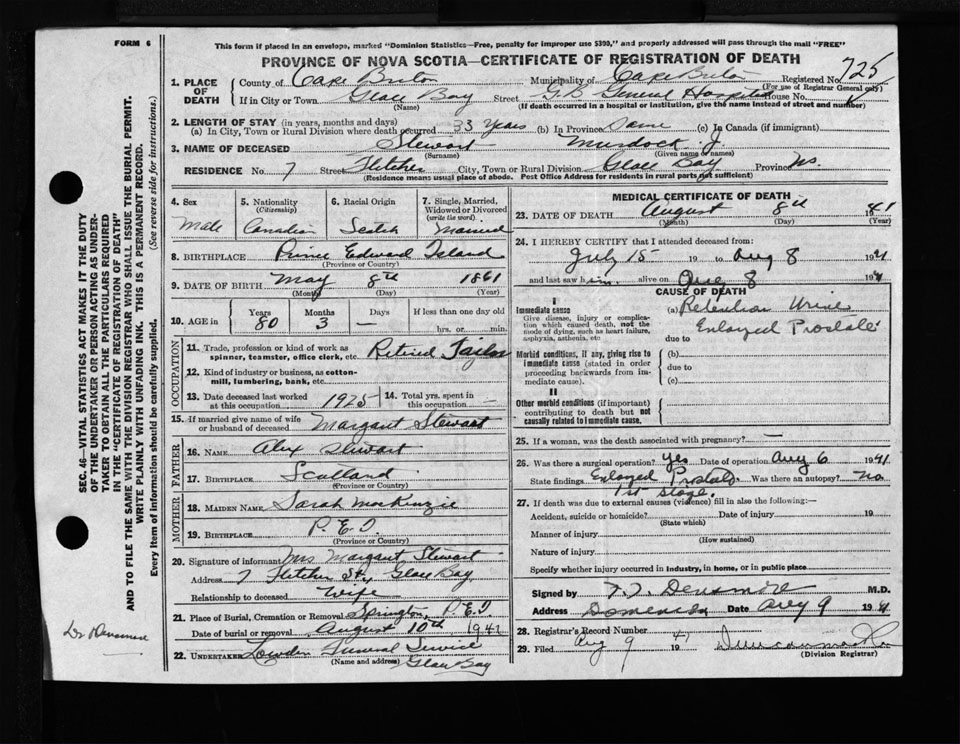 FORM 6
This form if placed in an envelope, marked "Dominion Statistics—Free, penalty for improper use $300," and properly addressed will pass through the mail "FREE"
PROVINCE OF NOVA SCOTIA—CERTIFICATE OF REGISTRATION OF DEATH
725
1. PLACE OF DEATH
County of Cape Breton Municipality of Cape Breton Registered No.
(For use of Registrar General only)
If in City or Town Glace Bay Street General Hospital House No.
(Name) (If death occurred in a hospital or institution, give the name instead of street and number)
2. LENGTH OF STAY (in years, months and days)
(a) In City, Town or Rural Division where death occurred 33 years (b) In Province Same (c) In Canada (if immigrant)
3. NAME OF DECEASED Stewart Murdock J.
(Surname) (Given name or names)
RESIDENCE No. 7 Street Fletcher City, Town or Rural Division Glace Bay Province NS.
(Residence means usual place of abode. Post Office Address for residents in rural parts not sufficient)
4. Sex
Male
5. Nationality
(Citizenship)
Canadian
6. Racial Origin
Scotch
7. Single, Married, Widowed or Divorced
(write the word)
Married
8. BIRTHPLACE Prince Edward Island
(Province or Country)
9. DATE OF BIRTH May 8th 1861
(Month) (Day) (Year)
10. AGE in
Years Months Days If less than one day old
80 3 — hrs. or min.
OCCUPATION
11. Trade, profession or kind of work as spinner, teamster, office clerk, etc. Retired Tailor
12. Kind of industry or business, as cotton-mill, lumbering, bank, etc.
13. Date deceased last worked at this occupation 1925
14. Total yrs. spent in this occupation —
15. If married give name of wife or husband of deceased Margaret Stewart
FATHER
16. NAME Alex Stewart
17. BIRTHPLACE Scotland
(Province or Country)
MOTHER
18. MAIDEN NAME Sarah MacKenzie
19. BIRTHPLACE P.E.I
(Province or Country)
20. Signature of informant Mrs Margaret Stewart
Address 7 Fletcher St, Glace Bay
Relationship to deceased Wife
21. Place of Burial, Cremation or Removal Springton, P.E.I
Date of burial or removal August 10th 1941
22. UNDERTAKER Lowden Funeral Service
(Name and address) Glace Bay
MEDICAL CERTIFICATE OF DEATH
23. DATE OF DEATH August 8th 1941
(Month) (Day) (Year)
24. I HEREBY CERTIFY that I attended deceased from:
July 15 19 to Aug 8 1941
and last saw him alive on Aug 8 1941
CAUSE OF DEATH
I
Immediate cause
Give disease, injury or complication which caused death, not the mode of dying, such as heart failure, asphyxia, asthenia, etc
(a) Retention Urine
Enlarged Prostate
due to
Morbid conditions, if any, giving rise to immediate cause (stated in order proceeding backwards from immediate cause).
(b)
due to
(c)
II
Other morbid conditions (if important) contributing to death but not causally related to immediate cause.
25. If a woman, was the death associated with pregnancy? —
26. Was there a surgical operation? yes Date of operation Aug 6 1941
State findings Enlarged Prostate Was there an autopsy? No
1st stage.
27. If death was due to external causes (violence) fill in also the following:—
Accident, suicide or homicide? Date of injury 19
(State which)
Manner of injury
(How sustained)
Nature of injury
Specify whether injury occurred in industry, in home, or in public place
Signed by Densmore M.D.
Address Dominion Date Aug 9 1941
28. Registrar's Record Number
29. Filed Aug 9 1941
(Division Registrar)
SEC. 46—VITAL STATISTICS ACT MAKES IT THE DUTY
OF THE UNDERTAKER OR PERSON ACTING AS UNDER-
TAKER TO OBTAIN ALL THE PARTICULARS REQUIRED
IN THE "CERTIFICATE OF REGISTRATION OF DEATH"
AND TO FILE THE SAME WITH THE DIVISION REGISTRAR WHO SHALL ISSUE THE BURIAL PERMIT.
WRITE PLAINLY WITH UNFADING INK. THIS IS A PERMANENT RECORD.
Every item of information should be carefully supplied. (See reverse side for instructions.)
Dr Densmore